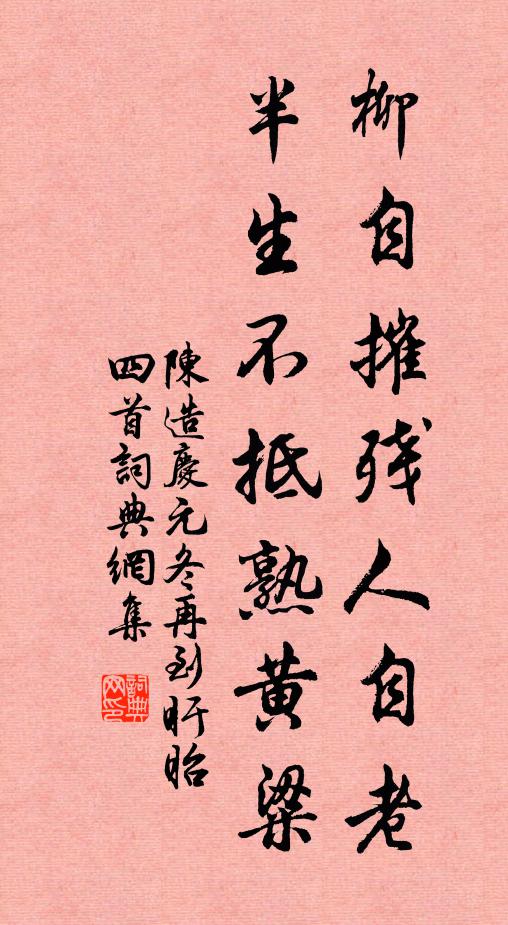 柳自摧残人自老
半生不抵熟黄粱
陳造慶元冬再到盱眙
四首詞典網集
詞典网印